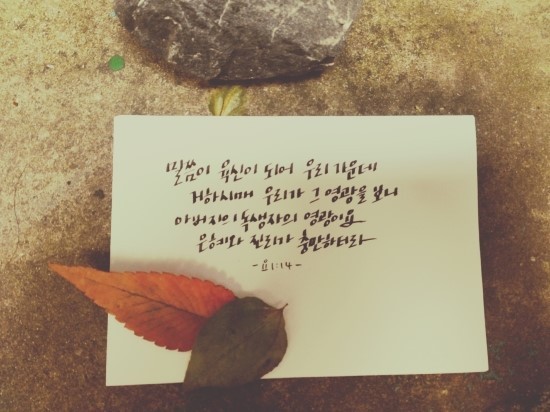 말씀이 육신이 되어 우리 가운데
거하시매 우리가 그 영광을 보니
아버지의 독생자의 영광이요
은혜와 진리가 충만하더라
- 요 1:14 -